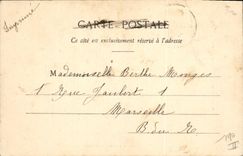 Imprimé
CARTE POSTALE
Ce côté est exclusivement réservé à l'adresse
Mademoiselle Berthe Monges
1 Rue Jaubert 1
Marseille
B. du R.